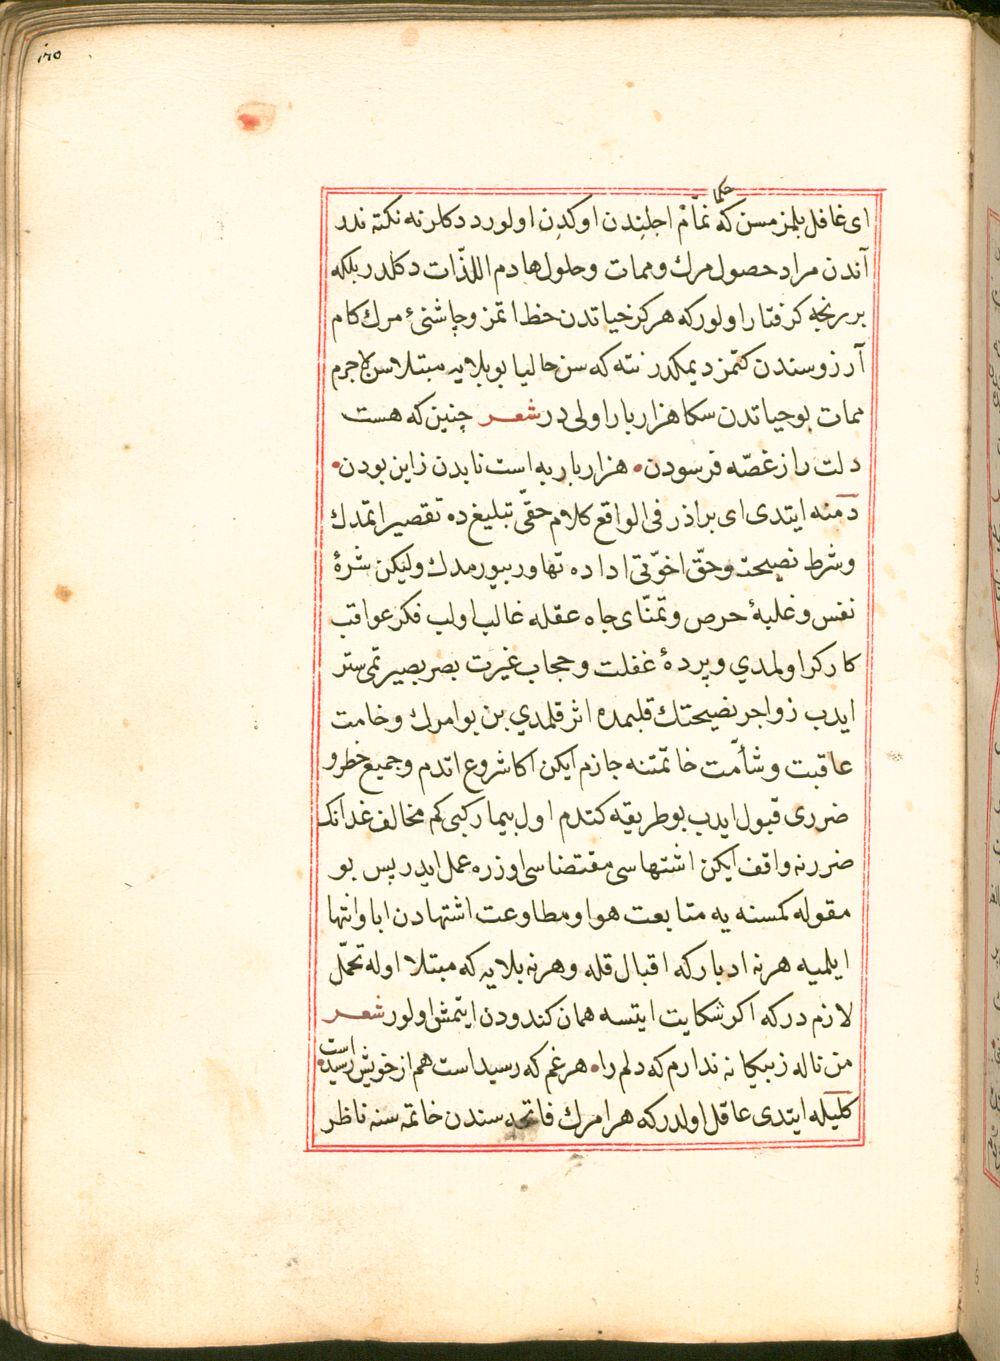 ١٦٥
حكما
ای غافل بلمزمسن كه نمّام اجلندن اوكدن اولور ددكلرنه نكته ندر
آندن مراد حصول مرك وممات وحلول هادم اللذّات دكلدر بلكه
بر رنجه كرفتار اولوركه هركز حياتدن حظ اتمز وچاشنئ مرك كام
آرزوسندن كتمز ديمكدر نته كه سن حاليا بو بلايه مبتلاسن لاجرم
ممات بو حياتدن سكا هزار بار اولی در شعر چنين كه هست
دلت را ز غصّه فرسودن هزار بار به است نابدن زاين بودن
دمنه ايتدی ای براذر فی الواقع كلام حقّی تبليغ ده تقصير اتمدك
وشرط نصيحت وحقّ اخوّتی اداده تهاون بيورمدك وليكن شرۀ
نفس وغلبۀ حرص وتمنّای جاه عقله غالب اولب فكر عواقب
كاركر اولمدي وپردۀ غفلت وحجاب غيرت بصر بصيرتمی ستر
ايدب زواجر نصيحتك قلبمده اثر قلمدي بن بو امرك وخامت
عاقبت وشأمت خاتمتنه جازم ايكن اكا شروع اتدم وجميع خطر و
ضرری قبول ايدب بو طريقه كتدم اول بيمار كبی كم مخالف غدانك
ضررنه واقف ايكن اشتهاسی مقتضاسی اوزره عمل ايدر پس بو
مقوله كمسنه يه متابعت هوا ومطاوعت اشتهادن ابا وانتها
ايلميه هر نه ادبار كه اقبال قله وهر نه بلايه كه مبتلا اوله تحمّل
لازم در كه اكر شكايت ايتسه همان كندودن ايتمش اولور شعر
من ناله ز بيكانه ندارم كه دلم را هر غم كه رسيد است هم از خويش رسيده است
كليله ايتدی عاقل اولدر كه هر امرك فاتحه سندن خاتمه سنه ناظر